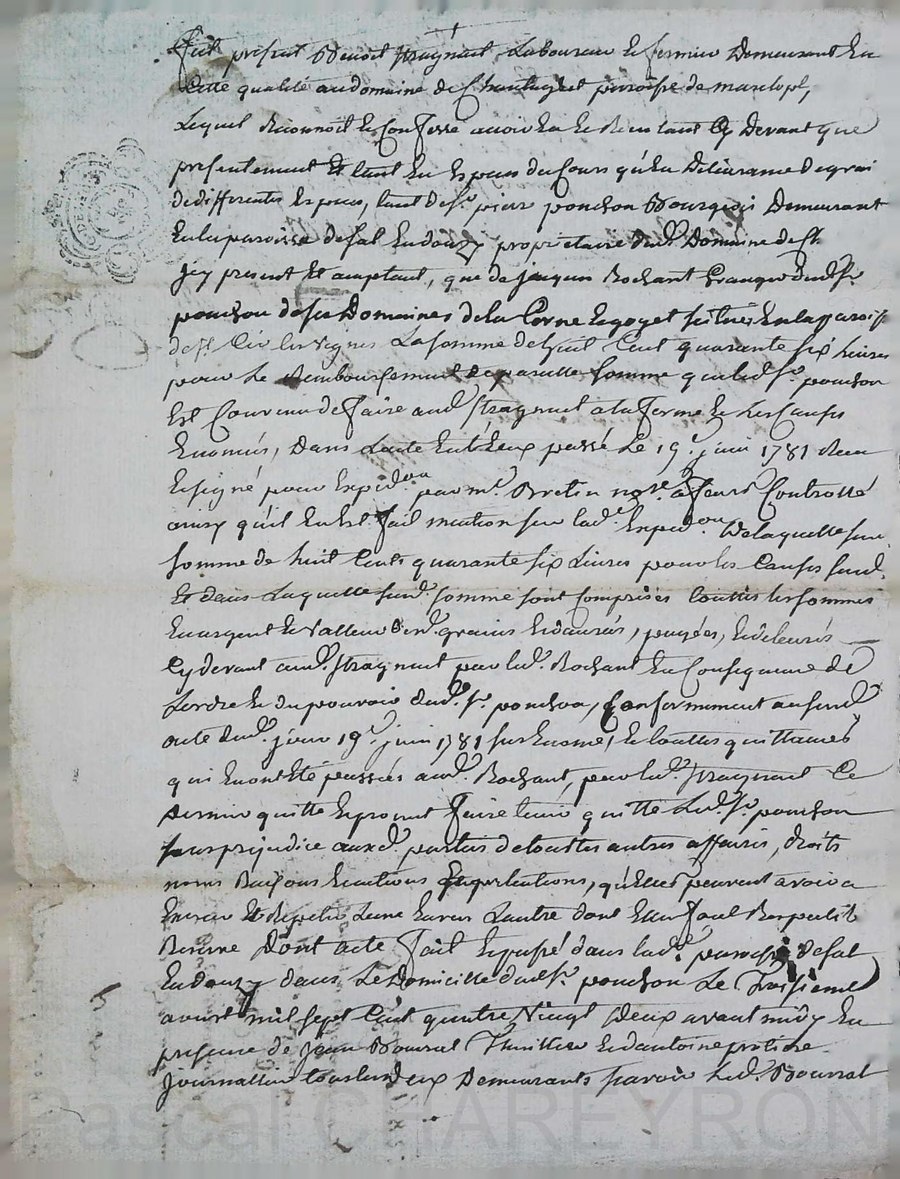 fut présent Benoît Stragnat Laboureur et fermier Demeurant En
Cette qualité au domaine de paroisse de
Lequel Reconnoit et Confesse avoir Eu et Recu tant Cy Devant que
présentement Et tant En Espèces du Cours qu'En Delivrance de grai
de differentes Especes, tant de Sr. pierre ponchon Bourgeois Demeurant
En la paroisse de sal En donzy propriétaire dud. Domaine de Ch
Icy présent Et acceptant, que de jacques Rochant Granger dud. Sr.
ponchon de ses Domaines de la Corne et goyet situés En la paroiss
de St. Cir les vignes La somme de huit Cent quarante six livres
pour Le Remboursement de pareille somme que led. Sr. ponchon
Est Convenu de faire aud. Stragnat a la forme Et Les Causes
Enoncés, Dans L'acte Entr'Eux passé Le 19e. juin 1781
Et signé pour Expedon. par me. Bretin nore. a feurs Controllé
ainsy qu'il En Est fait mention sur lad. Expedon. De laquelle sur.
somme de huit Cents quarante six Livres pour les Causes surd.
Et dans Laquelle surd. somme sont Comprises touttes les sommes
En argent Et Valleur Desd. grains Et danrés, payées, Et delivrés
Cy devant aud. Stragnat par led. Rochant En Consequence de
L'ordre Et du pouvoir dud. Sr. ponchon, Conformement au surd.
acte dud. jour 19e. juin 1781 sus Enoncé, Et touttes quittances
qui En ont Eté passées aud. Rochant, par led. Stragnat Ce
Dernier quitte Et promet faire tenir quitte Led. Sr. ponchon
sans prejudice auxd. parties de touttes autres affaires, droits
noms Raisons Et actions Et pretentions, qu'Elles peuvent avoir a
Exercer Et Repeter L'une Envers L'autre dont Elles font Respective
Reserve Dont acte fait Et passé dans lad. paroisse de sal
En donzy dans Le Domicille dud. Sr. ponchon Le Troisieme
avril mil sept Cent quatre Vingt Deux avant midy En
presence de Jean Bourrat Et d'antoine
Journallier tous les deux Demeurants savoir Led. Bourrat
Pascal CHAREYRON